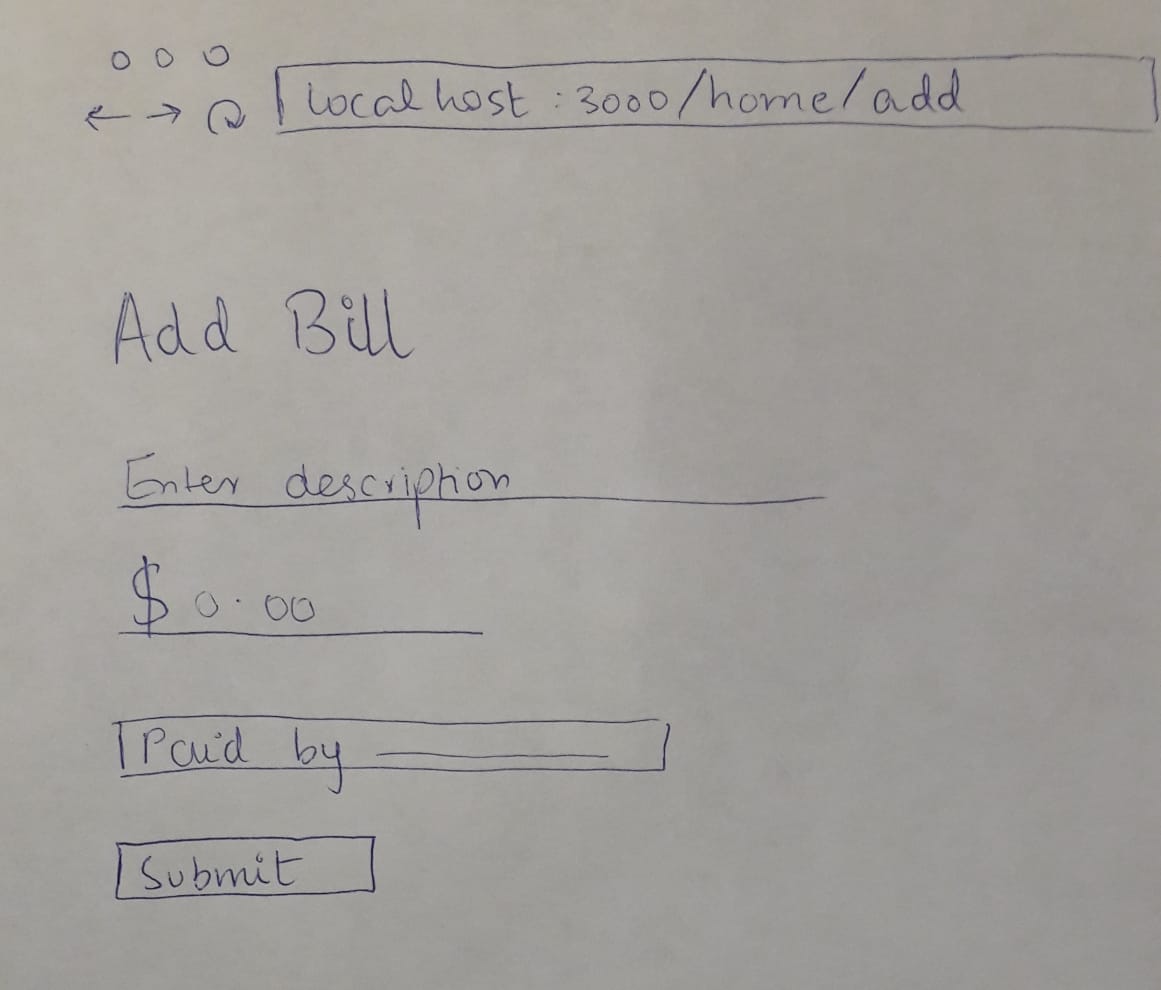 localhost:3000/home/add
Add Bill
Enter description
$ 0.00
Paid by
Submit